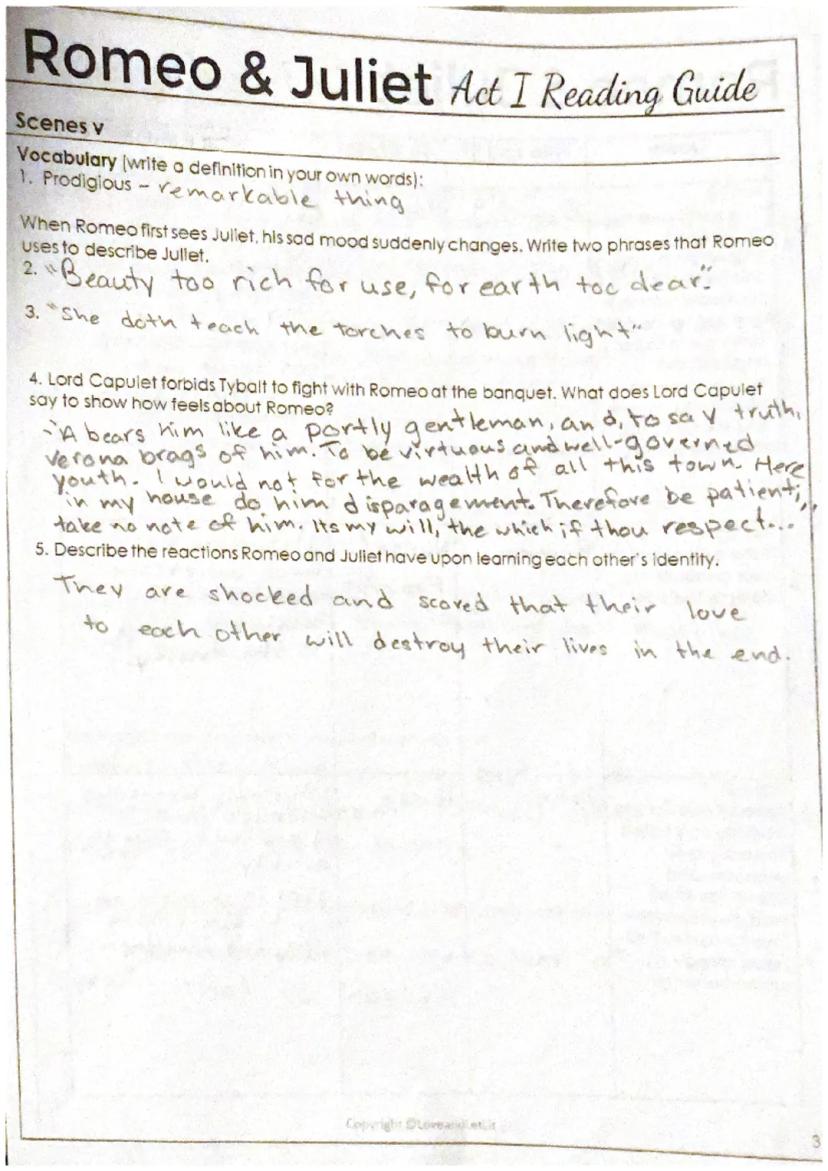 Romeo & Juliet Act I Reading Guide
Scenes v
Vocabulary (write a definition in your own words):
1. Prodigious - remarkable thing
When Romeo first sees Juliet, his sad mood suddenly changes. Write two phrases that Romeo
uses to describe Juliet.
2. "Beauty too rich for use, for earth too dear".
3. "She doth teach the torches to burn light"
4. Lord Capulet forbids Tybalt to fight with Romeo at the banquet. What does Lord Capulet
say to show how feels about Romeo?
"A bears him like a portly gentleman, and, to say truth,
verona brags of him. To be virtuous and well-governed
youth. I would not for the wealth of all this town. Here
in my house do him disparagement. Therefore be patient,
take no note of him. Its my will, the which if thou respect...
5. Describe the reactions Romeo and Juliet have upon learning each other's identity.
They are shocked and scared that their love
to each other will destroy their lives in the end.
Copyright ©LoveandLetLit
3